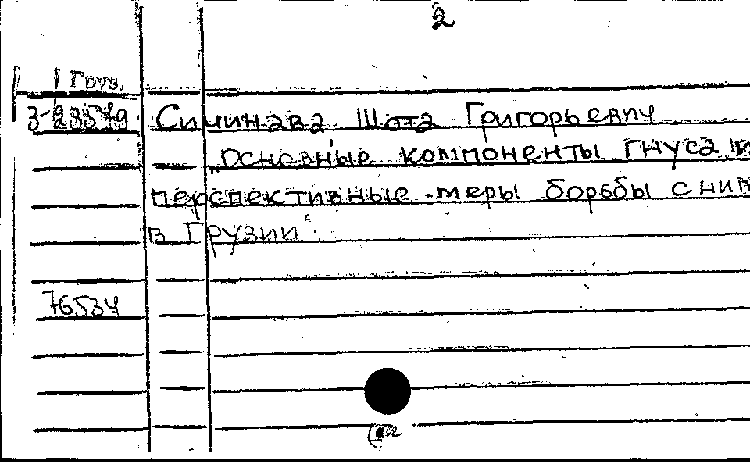 2
Груз.
3-23579 Сичинава Шота Григорьевич
"Основные компоненты гнуса и
перспективные меры борьбы с ним
в Грузии"
76534